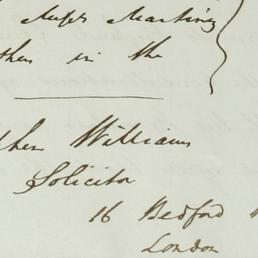 Messrs Martin
then in the
phen Williams
Solicitor
16 Bedford
London